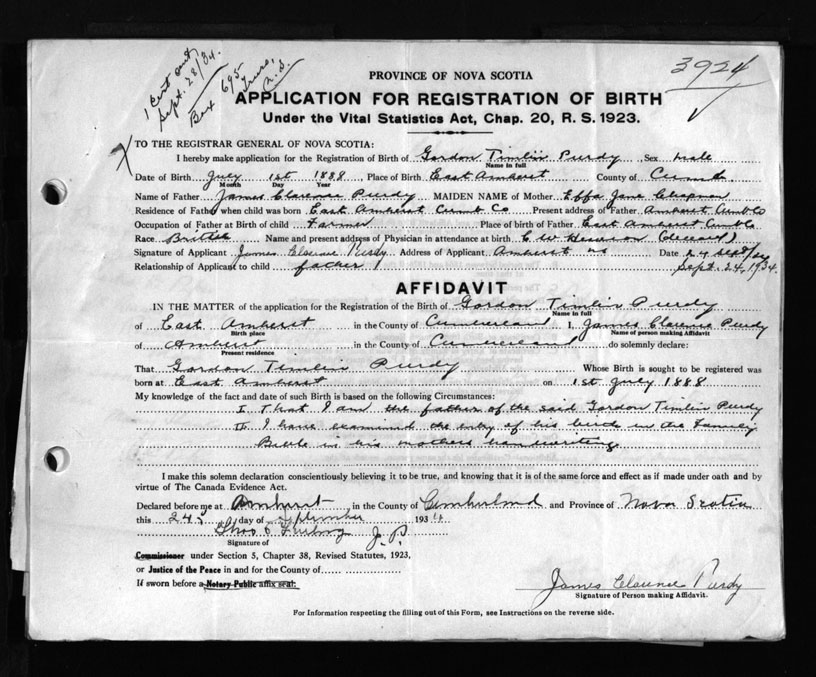 1 Cert sent
Sept. 28/34.
Box 695
Truro,
N.S.
3924
PROVINCE OF NOVA SCOTIA
APPLICATION FOR REGISTRATION OF BIRTH
Under the Vital Statistics Act, Chap. 20, R. S. 1923.
TO THE REGISTRAR GENERAL OF NOVA SCOTIA:
I hereby make application for the Registration of Birth of Gordon Timlin Purdy Sex Male
Name in full
Date of Birth July 1st 1888 Place of Birth East Amherst County of Cumb
Month Day Year
Name of Father James Clarence Purdy MAIDEN NAME of Mother Effa Jane Chapman
Residence of Father when child was born East Amherst Cumb Co Present address of Father Amherst Cumb Co
Occupation of Father at Birth of child Farmer Place of birth of Father East Amherst Cumb Co
Race British Name and present address of Physician in attendance at birth C W (deceased)
Signature of Applicant James Clarence Purdy Address of Applicant Amherst ns Date 24 Sept/34
Relationship of Applicant to child father Sept. 24, 1934.
AFFIDAVIT
IN THE MATTER of the application for the Registration of the Birth of Gordon Timlin Purdy
Name in full
of East Amherst in the County of Cumberland I, James Clarence Purdy
Birth place Name of person making Affidavit
of Amherst in the County of Cumberland do solemnly declare:
Present residence
That Gordon Timlin Purdy Whose Birth is sought to be registered was
born at East Amherst on 1st July 1888
My knowledge of the fact and date of such Birth is based on the following Circumstances:
I That I am the father of the said Gordon Timlin Purdy
II I have examined the entry of his birth in the Family
Bible in his mothers handwriting
I make this solemn declaration conscientiously believing it to be true, and knowing that it is of the same force and effect as if made under oath and by
virtue of The Canada Evidence Act.
Declared before me at Amherst in the County of Cumberland and Province of Nova Scotia
this 24 day of September 1934
J. P.
Signature of
Commissioner under Section 5, Chapter 38, Revised Statutes, 1923,
or Justice of the Peace in and for the County of
If sworn before a Notary Public affix seal.
James Clarence Purdy
Signature of Person making Affidavit.
For Information respecting the filling out of this Form, see Instructions on the reverse side.